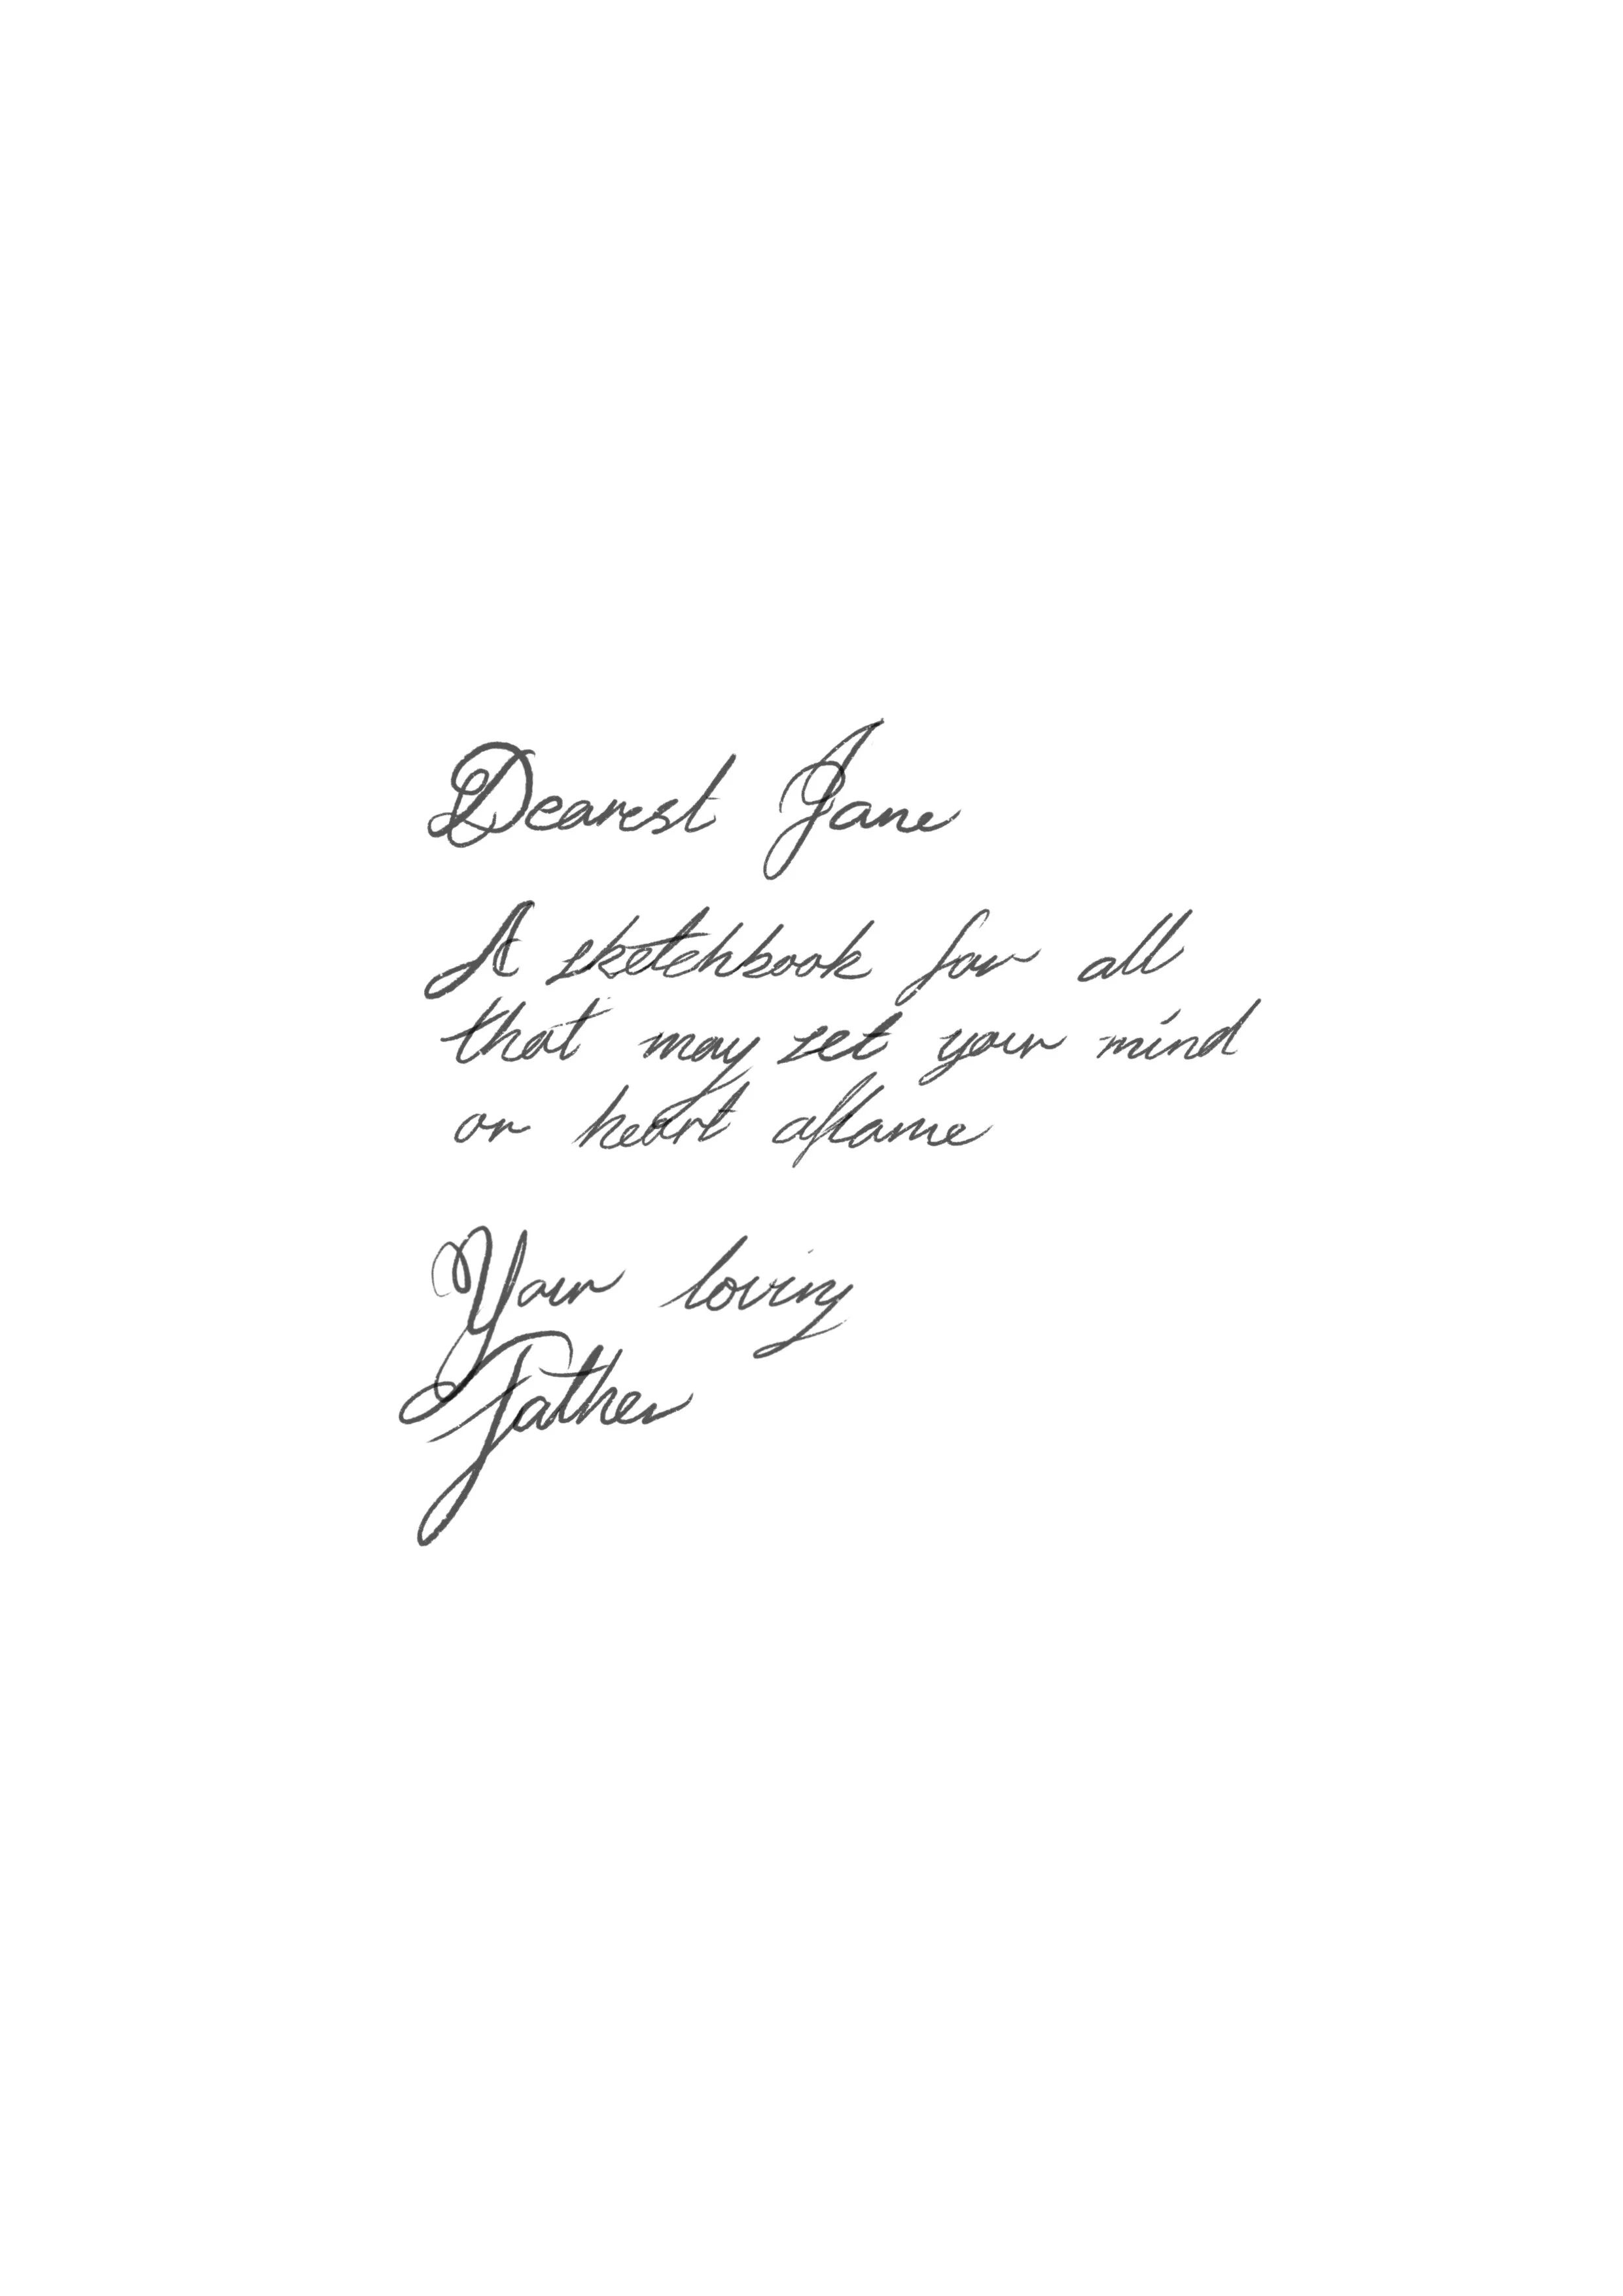 Dearest Jane
A sketchbook for all
that may set your mind
or heart aflame
Your loving
Father